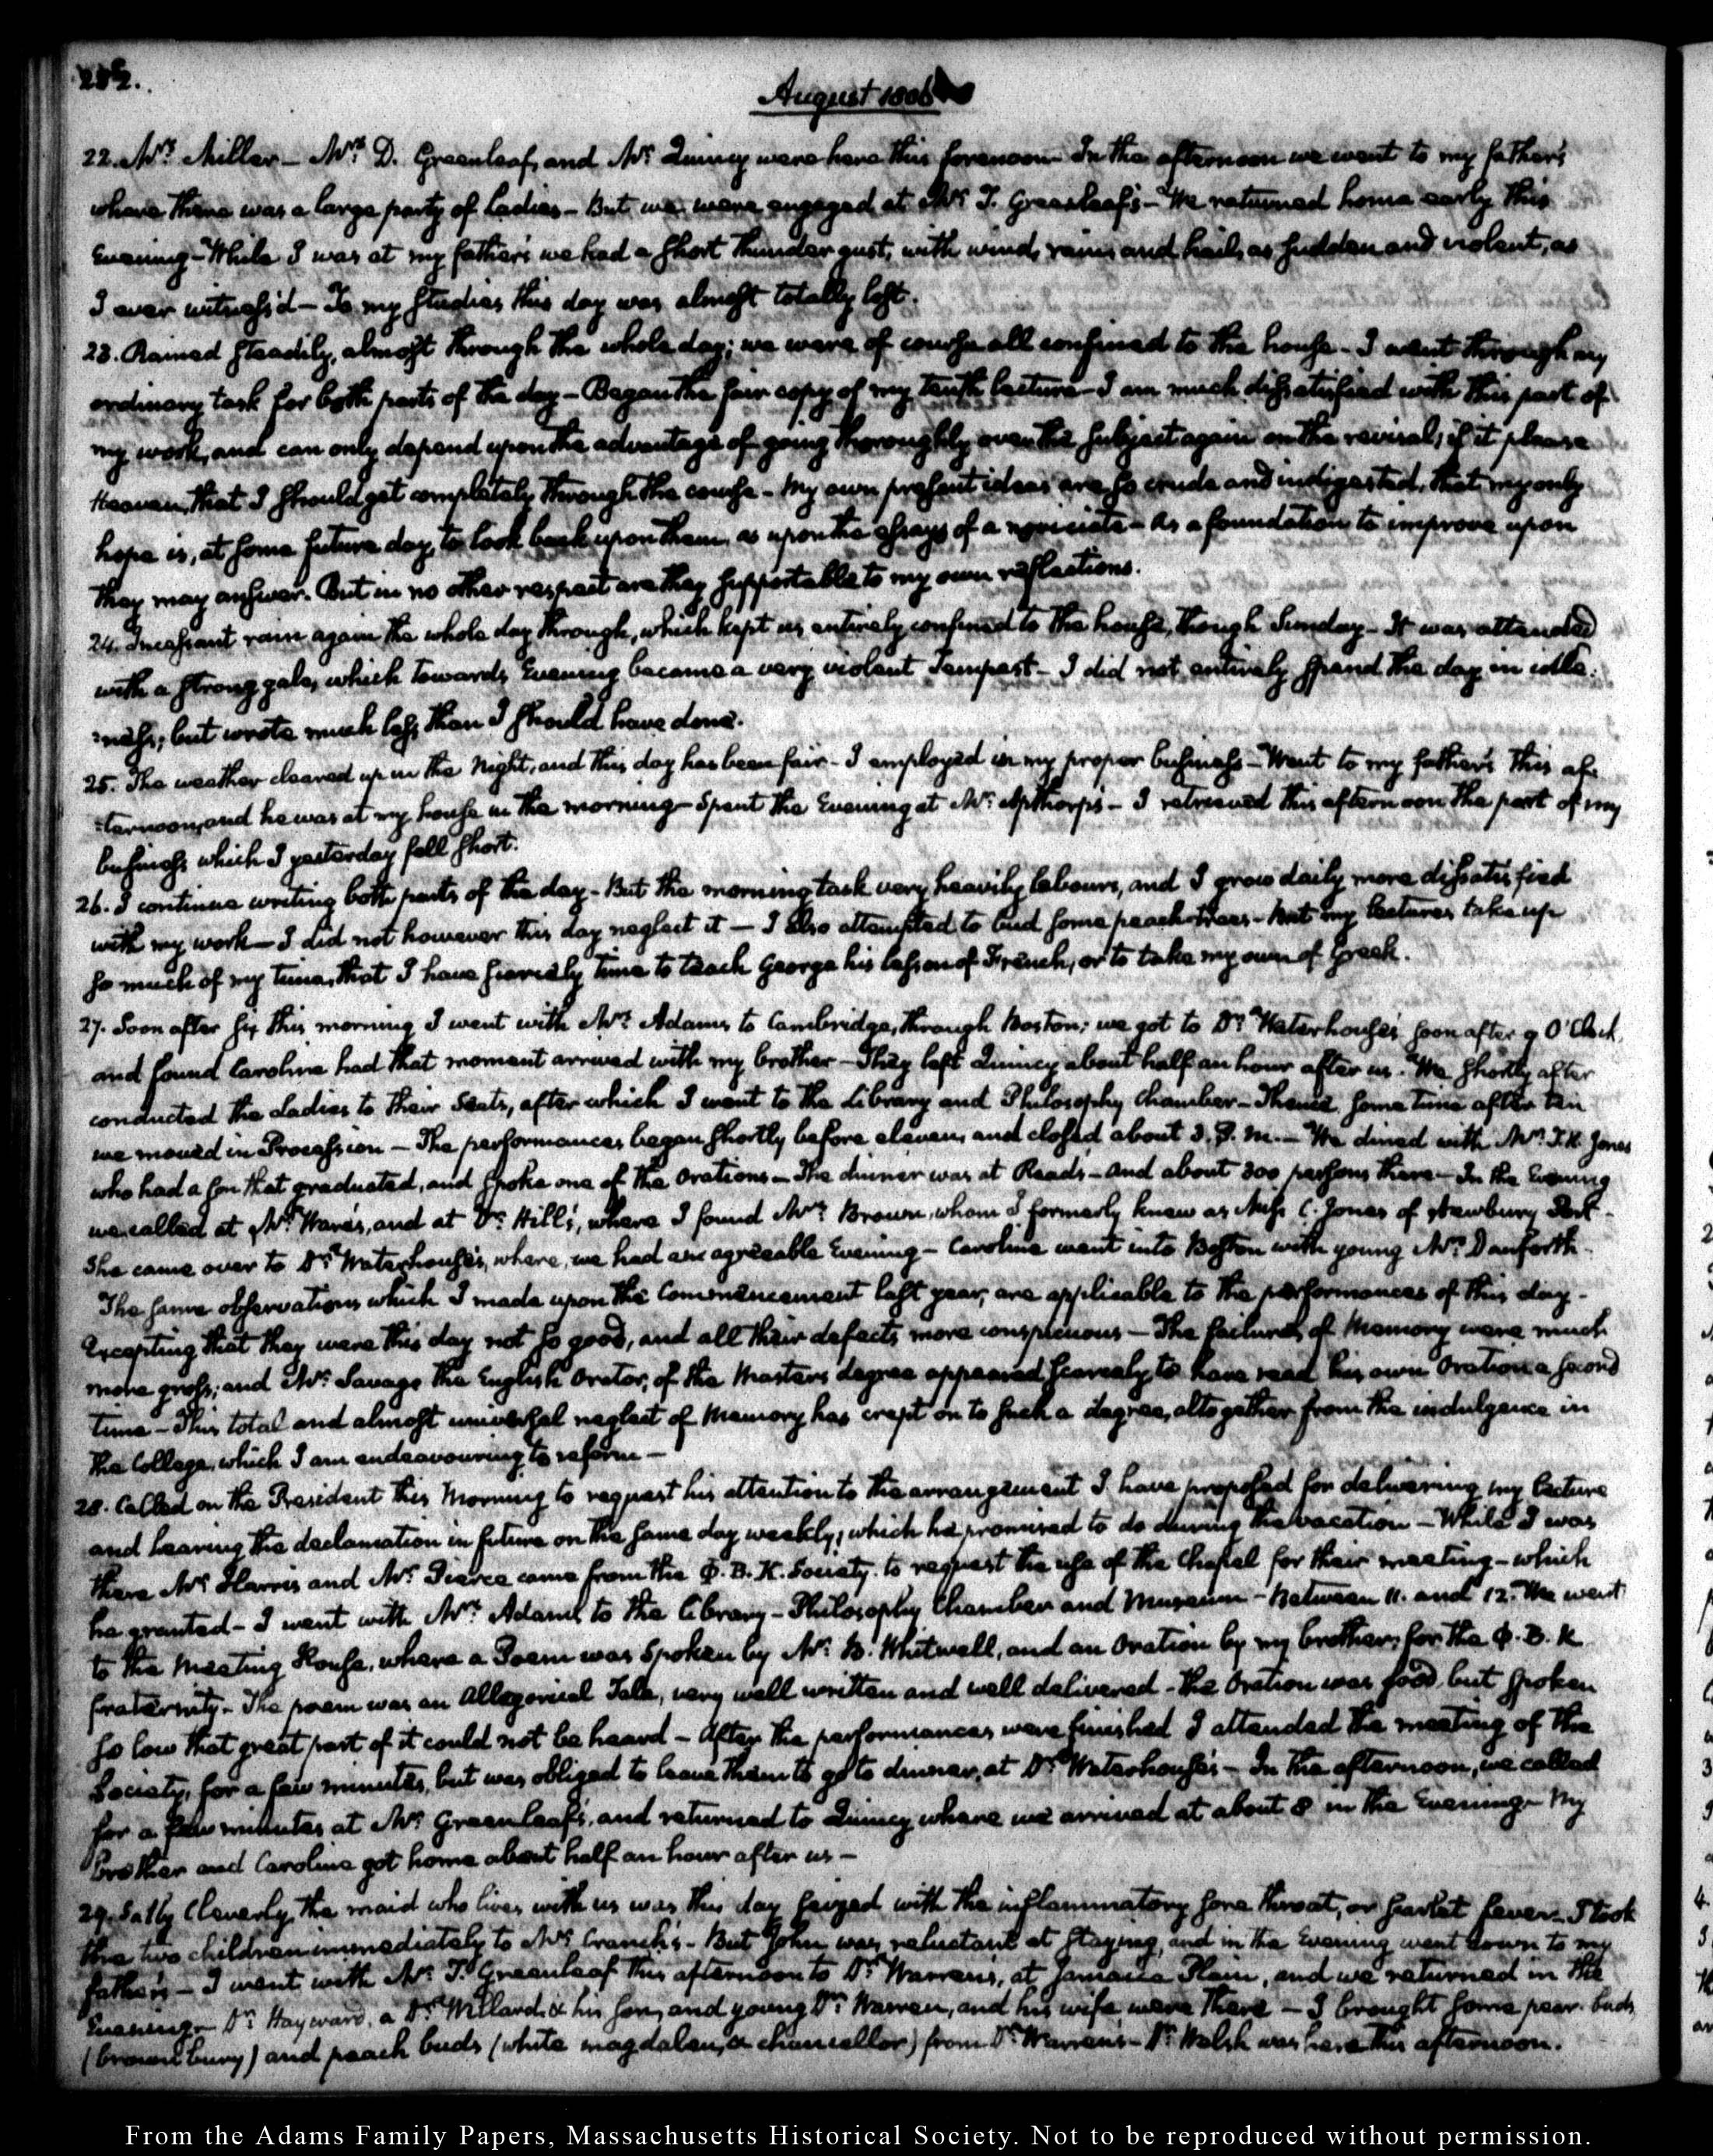 252.
August 1806
22. Mrs. Miller — Mrs. D. Greenleaf, and Mr. Quincy were here this forenoon — In the afternoon we went to my father's
where there was a large party of Ladies — But we were engaged at Mr. T. Greenleaf's — We returned home early this
Evening — While I was at my father's we had a short thunder gust, with wind, rain, and hail, as sudden and violent, as
I ever witness'd — To my studies this day was almost totally lost.
23. Rained steadily, almost through the whole day; we were of course all confined to the house — I went through my
ordinary task for both parts of the day — Began the fair copy of my tenth lecture — I am much dissatisfied with this part of
my work, and can only depend upon the advantage of going thoroughly over the subject again on the revisal; if it please
Heaven, that I should get completely through the course — My own present ideas are so crude and indigested, that my only
hope is, at some future day, to look back upon them, as upon the essays of a noviciate — As a foundation to improve upon
they may answer. But in no other respect are they supportable to my own reflections.
24. Incessant rain again the whole day through, which kept us entirely confined to the house, though Sunday — It was attended
with a strong gale, which towards Evening became a very violent Tempest — I did not entirely spend the day in idle:
:ness; but wrote much less than I should have done.
25. The weather cleared up in the Night, and this day has been fair — I employed in my proper business — Went to my father's this af:
:ternoon, and he was at my house in the morning — Spent the Evening at Mr. Apthorp's — I retrieved this afternoon the part of my
business which I yesterday fell short.
26. I continue writing both parts of the day — But the morning task very heavily labours, and I grow daily more dissatisfied
with my work — I did not however this day neglect it — I also attempted to bud some peach-trees — But my lectures take up
so much of my time, that I have scarcely time to teach George his lesson of French, or to take my own of Greek.
27. Soon after six this morning I went with Mrs. Adams to Cambridge, through Boston; we got to Dr. Waterhouse's soon after 9 O'Clock,
and found Caroline had that moment arrived with my brother — They left Quincy about half an hour after us. We shortly after
conducted the Ladies to their Seats, after which I went to the Library and Philosophy Chamber — Thence, some time after ten
we moved in Procession — The performances began shortly before eleven, and closed about 3. P.M. — We dined with Mr. T. K. Jones
who had a son that graduated, and spoke one of the Orations — The dinner was at Read's — and about 300 persons there — In the Evening
we called at Mr. Ware's, and at Dr. Hill's, where I found Mrs. Brown, whom I formerly knew as Miss C. Jones of Newbury Port —
She came over to Dr. Waterhouse's, where, we had an agreeable Evening — Caroline went into Boston with young Mr. Danforth —
The same observations which I made upon the Commencement last year, are applicable to the performances of this day —
Excepting that they were this day not so good, and all their defects more conspicuous — The failures of Memory were much
more gross; and Mr. Savage the English Orator, of the Masters degree appeared scarcely to have read his own Oration a second
time — This total and almost universal neglect of Memory has crept on to such a degree, altogether from the indulgence in
the College, which I am endeavouring to reform —
28. Called on the President this Morning to request his attention to the arrangement I have proposed for delivering my lecture
and hearing the declamation in future on the same day weekly, which he promised to do during the vacation — While I was
there Mr. Harris and Mr. Pierce came from the Φ. B. K. Society, to request the use of the Chapel for their meeting — which
he granted — I went with Mrs. Adams to the Library — Philosophy Chamber and Museum — Between 11. and 12. We went
to the Meeting House, where a Poem was spoken by Mr. B. Whitwell, and an Oration by my brother, for the Φ. B. K
fraternity. The poem was an Allegorical Tale, very well written and well delivered — the Oration was good, but spoken
so low that great part of it could not be heard — After the performances were finished I attended the meeting of the
Society, for a few minutes, but was obliged to leave them to go to dinner, at Dr. Waterhouse's — In the afternoon, we called
for a few minutes at Mr. Greenleaf's, and returned to Quincy, where we arrived at about 8 in the Evening — My
brother and Caroline got home about half an hour after us —
29. Sally Cleverly, the maid who lives with us was this day seized with the inflammatory sore throat, or scarlet fever — I took
the two children immediately to Mr. Cranch's — But John was reluctant at staying, and in the Evening went down to my
father's — I went with Mr. T. Greenleaf this afternoon to Dr. Warren's, at Jamaica Plain, and we returned in the
Evening — Dr. Hayward, a Dr. Willard & his son, and young Dr. Warren, and his wife, were there — I brought some pear buds
(brown bury) and peach buds (white magdalen, & chancellor) from Dr. Warren's — Dr. Welsh was here this afternoon.
From the Adams Family Papers, Massachusetts Historical Society. Not to be reproduced without permission.